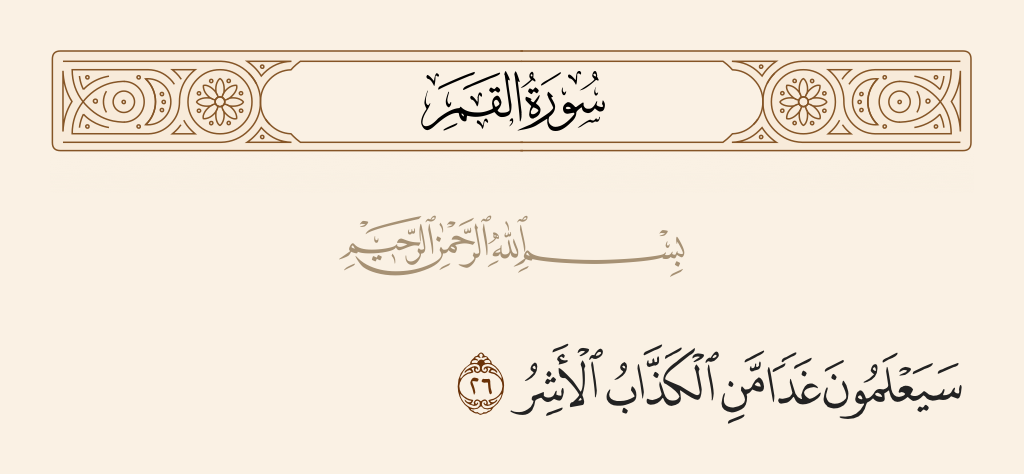 سُورَةُ القَمَرِ
بِسْمِ ٱللَّهِ ٱلرَّحْمَٰنِ ٱلرَّحِيمِ
سَيَعْلَمُونَ غَدًا مَّنِ ٱلْكَذَّابُ ٱلْأَشِرُ ٢٦